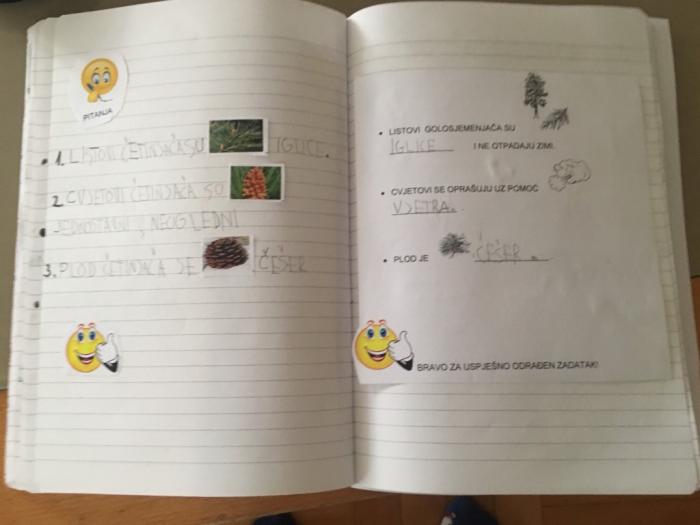 PITANJA
1. LISTOVI ČETINJAČA SU IGLICE.
2. CVJETOVI ČETINJAČA SU
JEDNOSTAVNI, NEOGLEDNI
3. PLOD ČETINJAČA JE ČEŠER
LISTOVI GOLOSJEMENJAČA SU
IGLICE I NE OTPADAJU ZIMI.
CVJETOVI SE OPRAŠUJU UZ POMOĆ
VJETRA.
PLOD JE ČEŠER.
BRAVO ZA USPJEŠNO ODRAĐEN ZADATAK!